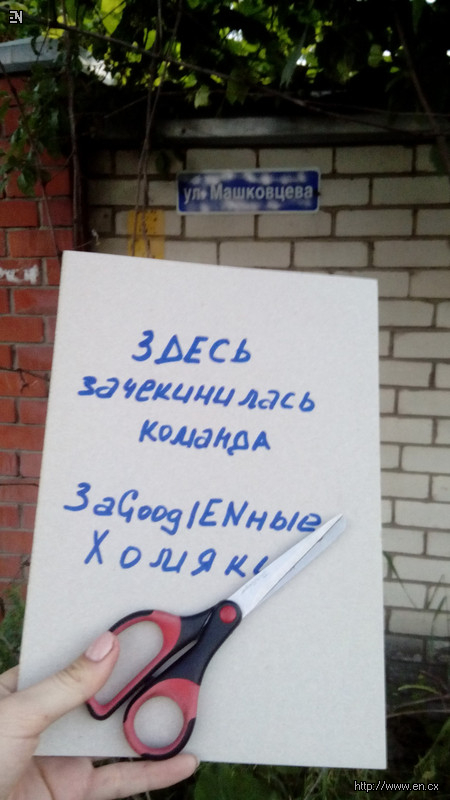 EN
ул. Машковцева
ЗДЕСЬ
зачекинилась
команда
ЗаGooglENные
Хомяки
http://www.en.cx